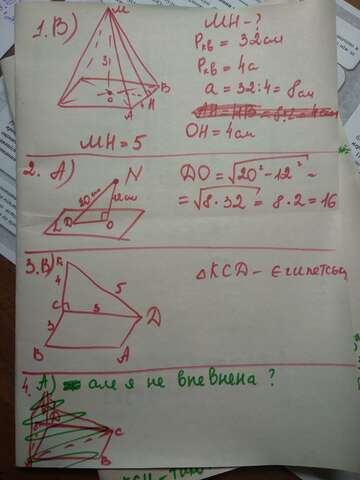 1. В)
M
3
O
B
A
H
MH = 5
MH - ?
Pкв = 32см
Pкв = 4a
a = 32:4 = 8см
AH = HB = 8:2 = 4см
OH = 4см
2. А)
N
20см
12см
D
O
L
DO = √20² - 12² =
= √8 · 32 = 8 · 2 = 16
3. В)
K
4
5
C
3
3
D
B
A
△KCD - Єгипетськ
4. А) але я не впевнена ?
C
B